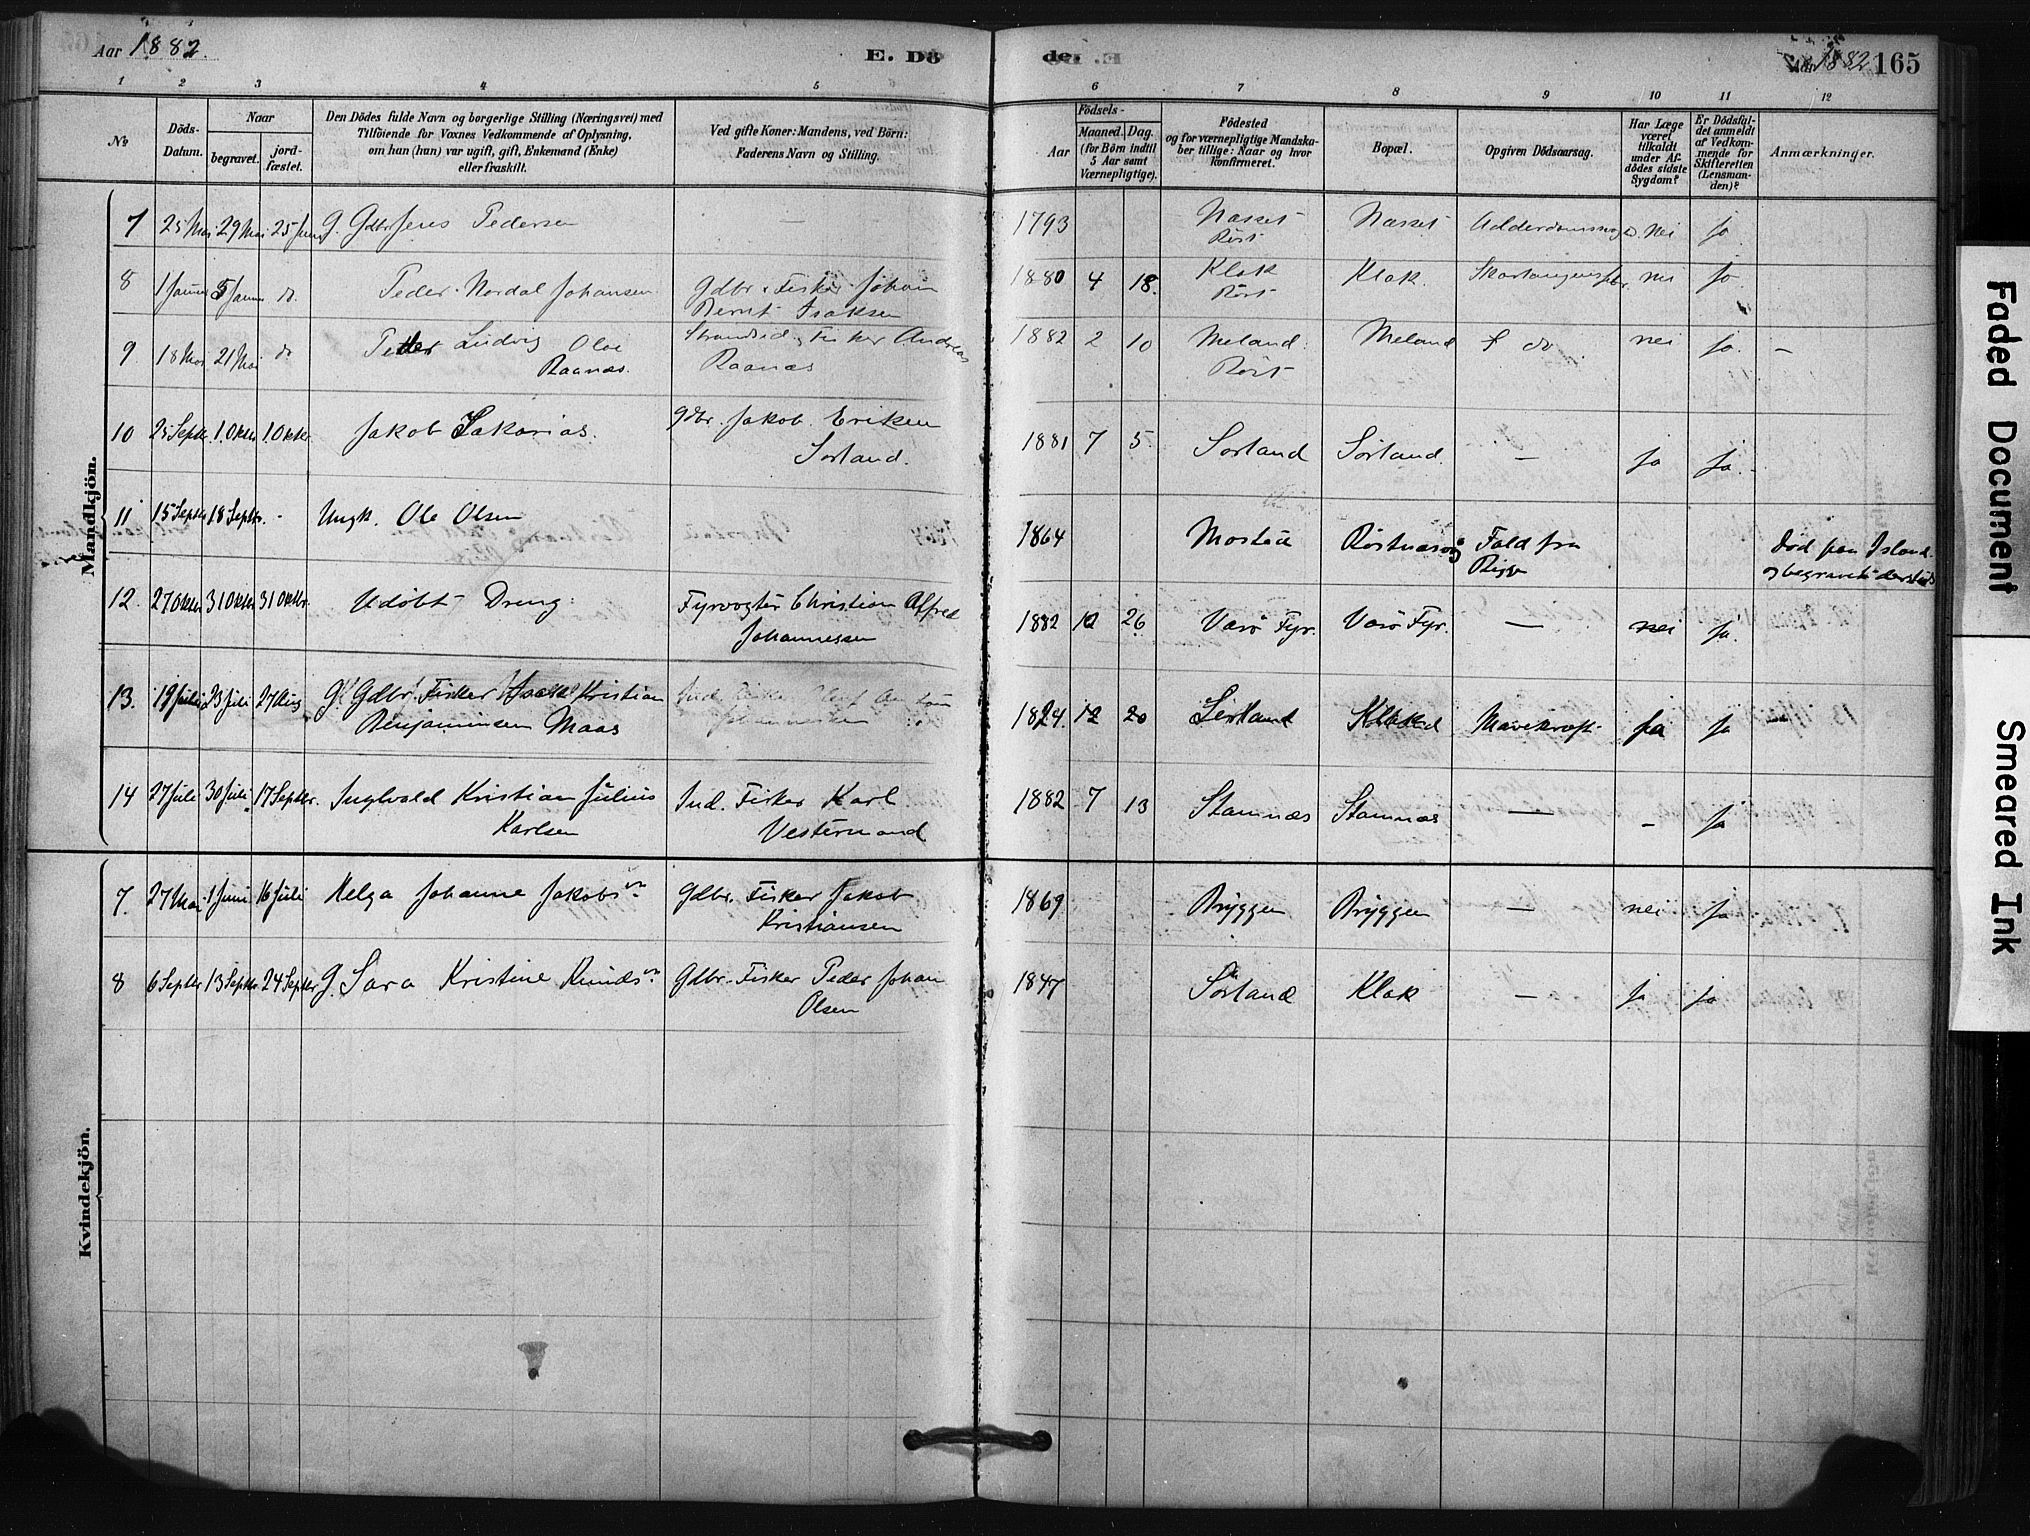 Aar 1882.
E. Dö
de.
Aar 1882 165
1 2 3 4 5 6 7 8 9 10 11 12
No
Döds-Datum.
Naar
begravet.
jord-fæstet.
Den Dödes fulde Navn og borgerlige Stilling (Næringsvei) med
Tilföiende for Voxnes Vedkommende af Oplysning,
om hun (han) var ugift, gift, Enkemand (Enke)
eller fraskilt.
Ved gifte Koner: Mandens, ved Börn:
Faderens Navn og Stilling.
Födsels-
Aar
Maaned. Dag.
(for Börn indtil
5 Aar samt
Værnepligtige).
Födested
og for værnepligtige Mandska-
ber tillige: Naar og hvor
konfirmeret.
Bopæl.
Opgiven Dödsaarsag.
Har Læge
været
tilkaldt
under Af-
dödes sidste
Sygdom?
Er Dödsfal-
det anmeldt
af Vedkom-
mende for
Skifteretten
(Lensman-
den)?
Anmærkninger.
Mandkjön.
7 25 Mai 29 Mai 25 Juni g. Gdbr Jens Pedersen — 1793 Næsset Røst Næsset nei ja
8 1 Juni 5 Juni do. Peder Nordal Johansen Gdbr. Fisker Johan
Bernt Isaksen 1880 4 18. Klak Røst Klak. nei ja.
9 18 Mai 21 Mai do Peder Ludvig Olai
Raanæs. Fisker Andreas
Raanæs 1882 2 10 Meland Røst Meland do nei ja. —
10 25 Septbr. 1 Oktbr 1 Oktbr. Jakob Zakarias. Gdbr. Jakob Eriksen
Sørland. 1881 7 5. Sørland Sørland. — ja ja.
11 15 Septbr 18 Septbr. - Ungk. Ole Olsen 1864 Mostad Røstnæsvåg Fald fra
Rigge Død paa Island
og begravet dersteds
12. 27 Oktbr 31 Oktbr 31 Oktbr. Udøbt Dreng Fyrvogter Christian Alfred
Johannessen 1882 10 26 Værö Fyr. Værö Fyr. — nei ja.
13. 19 Juli 23 Juli 27 Aug G. Gdbr. Fisker Isak Kristian
Benjaminsen Maas 1824. 12 20 Sørland Klak Mavekræft ja ja —
14 27 Juli 30 Juli 17 Septbr. Ingvald Kristian Julius
Karlsen Ind. Fisker Karl
Vestermand 1882 7 13 Stamnæs Stamnæs — - ja
Kvindekjön.
7. 27 Mai 1 Juni 16 Juli Helga Johanne Jakobsen Gdbr. Fisker Jakob
Kristiansen 1869 Bryggen Bryggen — nei ja
8 6 Septbr 13 Septbr 24 Septbr g. Sara Kristine Knudsen Gdbr. Fisker Peder Johan
Olsen 1847 Sørland Klak — ja ja
Faded Document
Smeared Ink